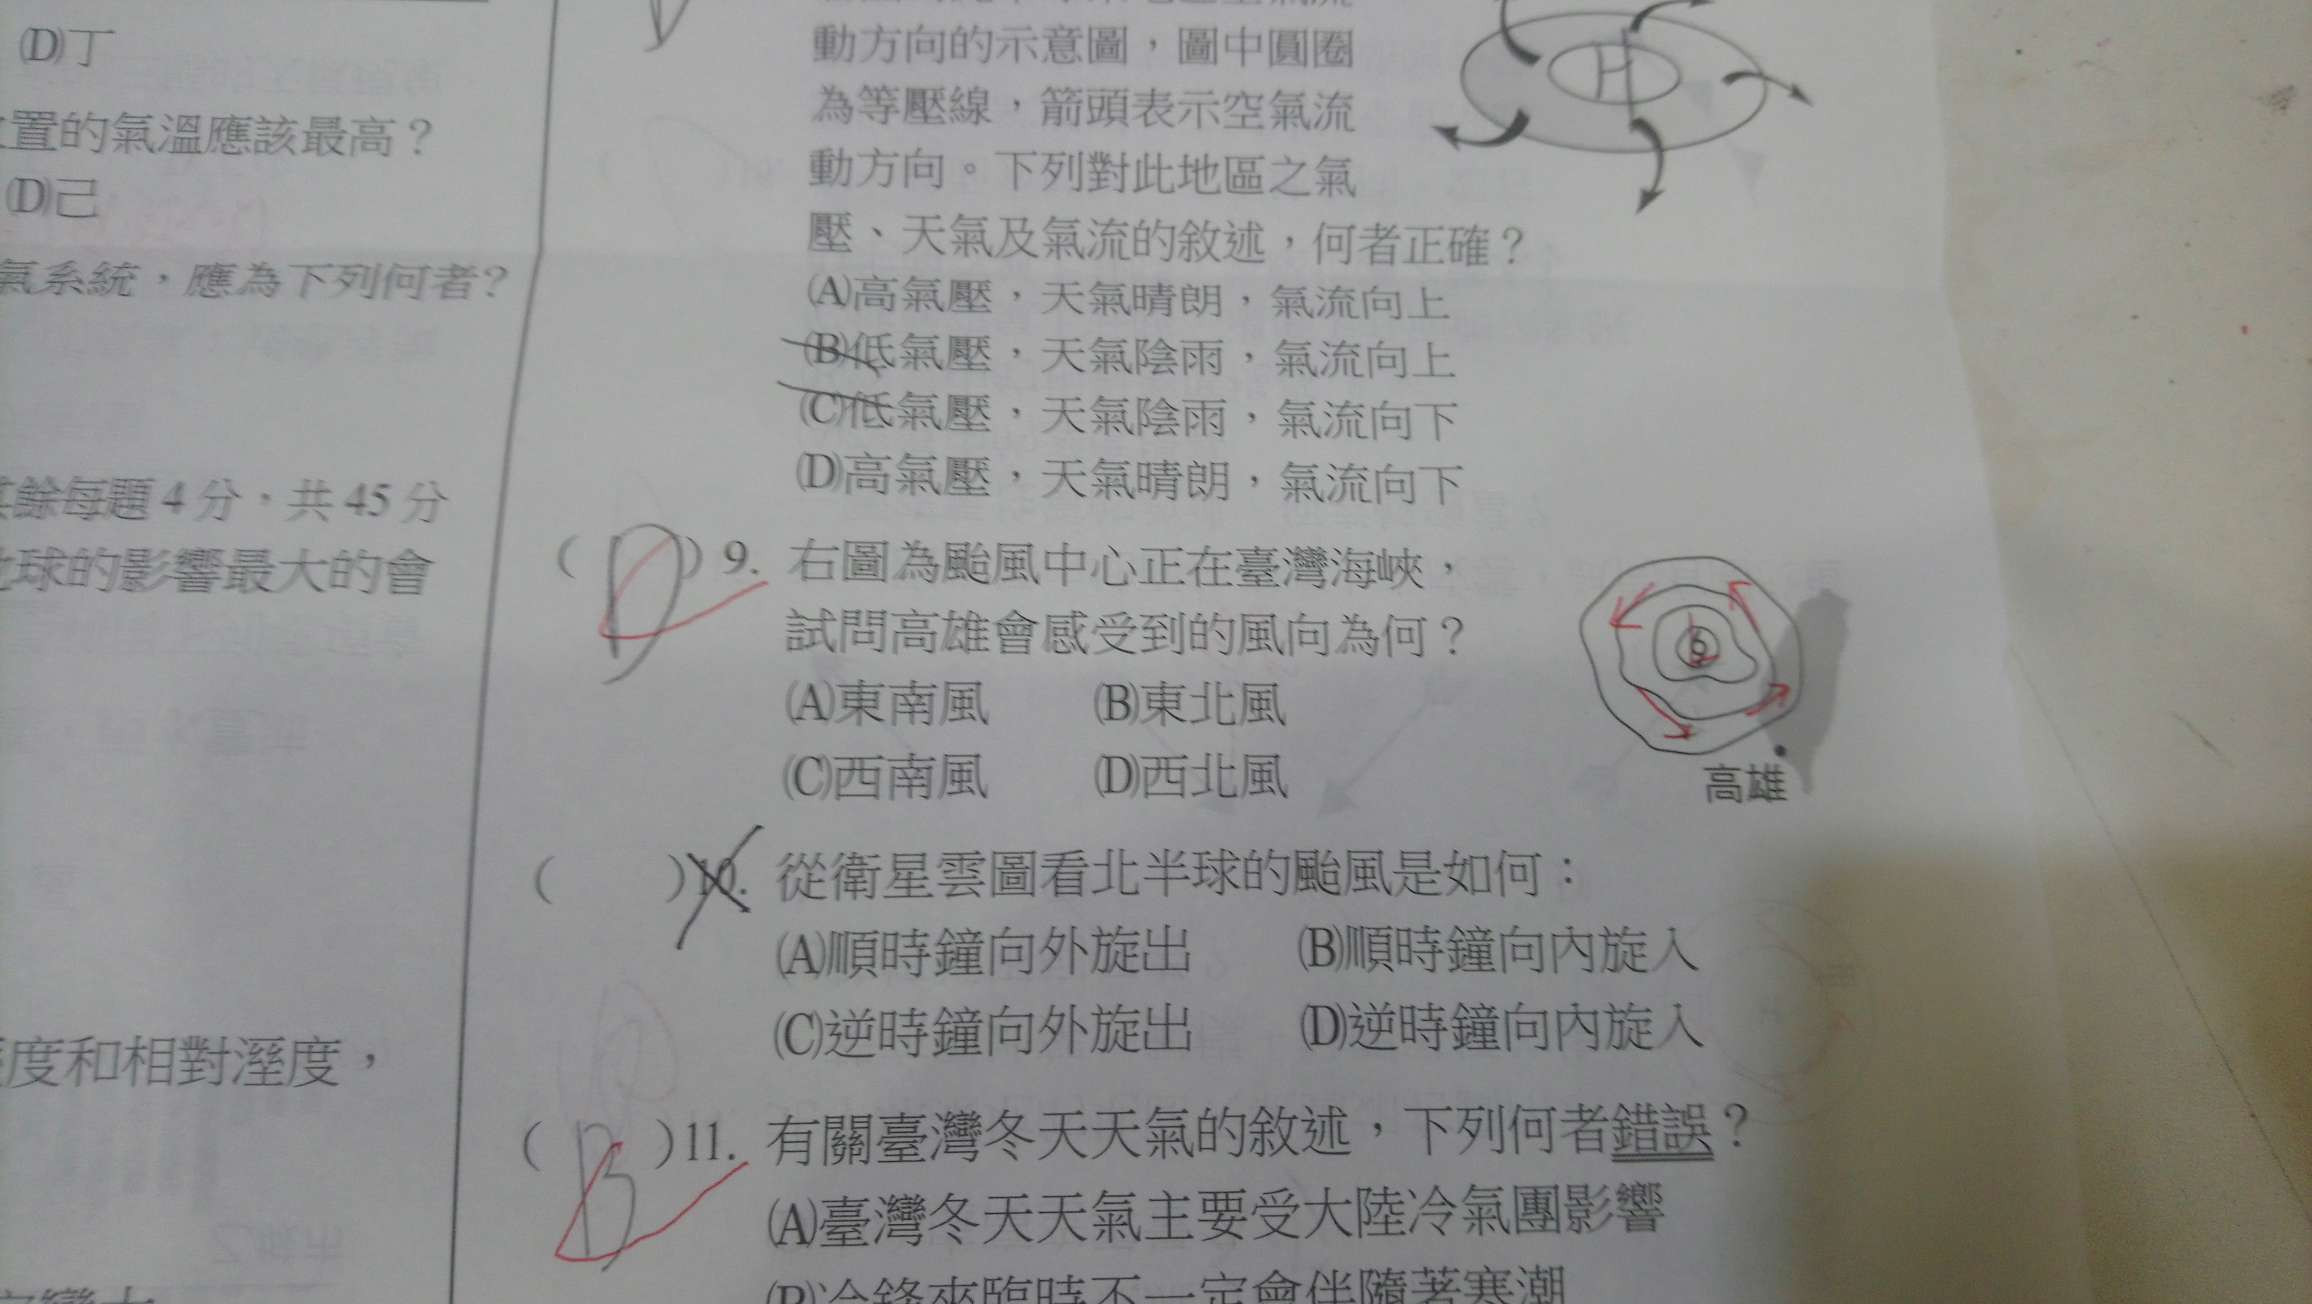 (D)丁
置的氣溫應該最高？
(D)己
氣系統，應為下列何者？
其餘每題4分，共45分
球的影響最大的會
度和相對溼度，
動方向的示意圖，圖中圓圈
為等壓線，箭頭表示空氣流
動方向。下列對此地區之氣
壓、天氣及氣流的敘述，何者正確？
(A)高氣壓，天氣晴朗，氣流向上
(B)低氣壓，天氣陰雨，氣流向上
(C)低氣壓，天氣陰雨，氣流向下
(D)高氣壓，天氣晴朗，氣流向下
H
( D )9. 右圖為颱風中心正在臺灣海峽，
試問高雄會感受到的風向為何？
(A)東南風 (B)東北風
(C)西南風 (D)西北風
高雄
( )10. 從衛星雲圖看北半球的颱風是如何：
(A)順時鐘向外旋出 (B)順時鐘向內旋入
(C)逆時鐘向外旋出 (D)逆時鐘向內旋入
( B )11. 有關臺灣冬天天氣的敘述，下列何者錯誤？
(A)臺灣冬天天氣主要受大陸冷氣團影響
(B)冷鋒來臨時不一定會伴隨著寒潮